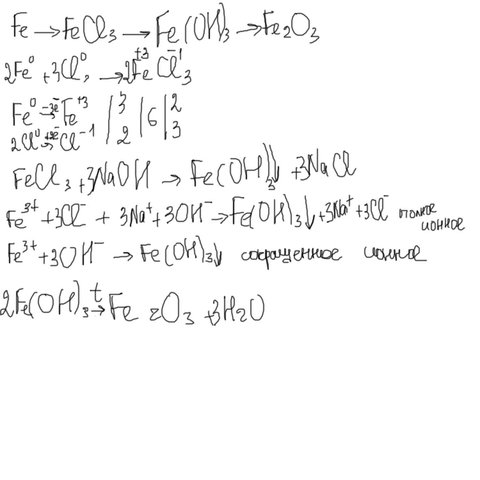 Fe → FeCl₃ → Fe(OH)₃ → Fe₂O₃
2Fe⁰ + 3Cl⁰₂ → 2Fe⁺³Cl⁻¹₃
Fe⁰ -3e⁻→ Fe⁺³ | 3 | 6 | 2
2Cl⁰ +2e⁻→ Cl⁻¹ | 2 | | 3
FeCl₃ + 3NaOH → Fe(OH)₃↓ + 3NaCl
Fe³⁺ + 3Cl⁻ + 3Na⁺ + 3OH⁻ → Fe(OH)₃↓ + 3Na⁺ + 3Cl⁻ полное ионное
Fe³⁺ + 3OH⁻ → Fe(OH)₃↓ сокращенное ионное
2Fe(OH)₃ t→ Fe₂O₃ + 3H₂O